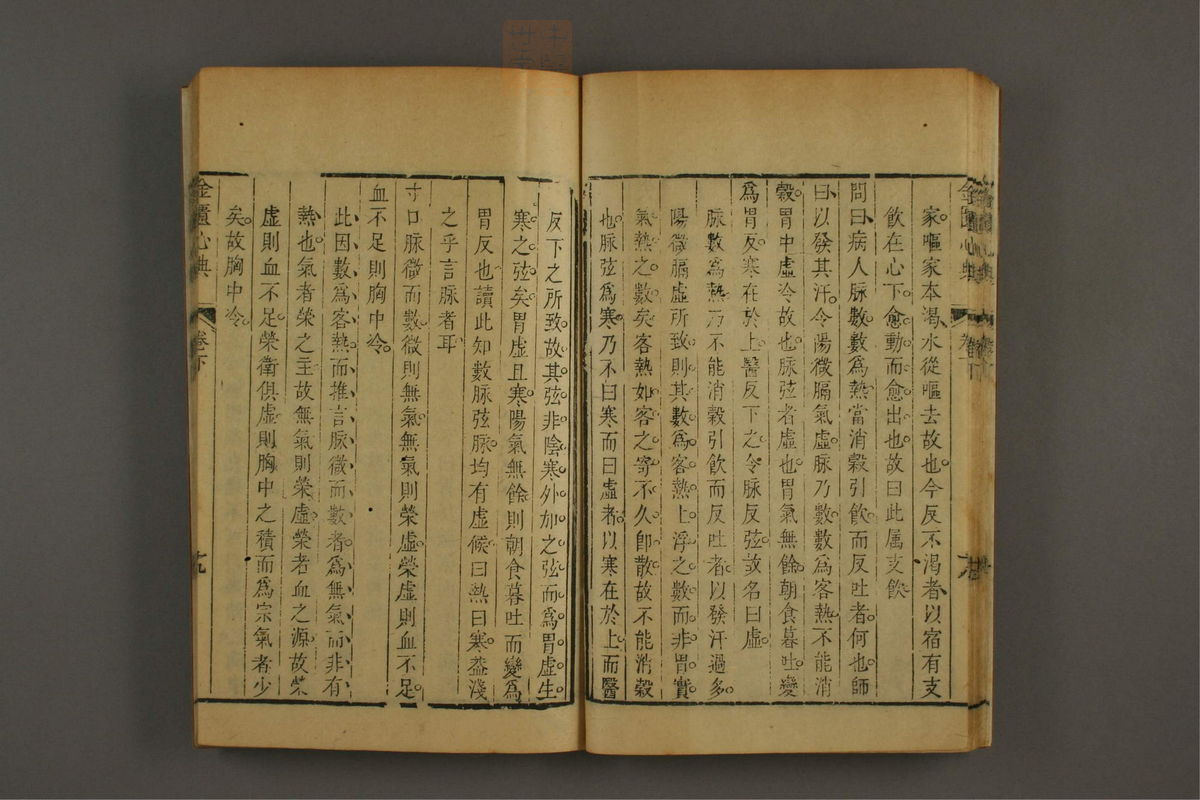 家嘔家本渴水從嘔去故也今反不渴者以宿有支
飲在心下愈動而愈出也故曰此屬支飲
問曰病人脉數數爲熱當消穀引飲而反吐者何也師
曰以發其汗令陽微膈氣虛脉乃數數爲客熱不能消
穀胃中虛冷故也脉弦者虛也胃氣無餘朝食暮吐變
爲胃反寒在於上醫反下之令脉反弦故名曰虛
脉數爲熱乃不能消穀引飲而反吐者以發汗過多
陽微膈虛所致則其數爲客熱上浮之數而非胃實
氣熱之數矣客熱如客之寄不久即散故不能消穀
也脉弦爲寒乃不曰寒而曰虛者以寒在於上而醫
反下之所致故其弦非陰寒外加之弦而爲胃虛生
寒之弦矣胃虛且寒陽氣無餘則朝食暮吐而變爲
胃反也讀此知數脉弦脉均有虛候曰熱曰寒葢淺
之乎言脉者耳
寸口脉微而數微則無氣無氣則榮虛榮虛則血不足
血不足則胸中冷
此因數爲客熱而推言脉微而數者爲無氣而非有
熱也氣者榮之主故無氣則榮虛榮者血之源故榮
虛則血不足榮衛俱虛則胸中之積而爲宗氣者少
矣故胸中冷
金匱心典
卷下